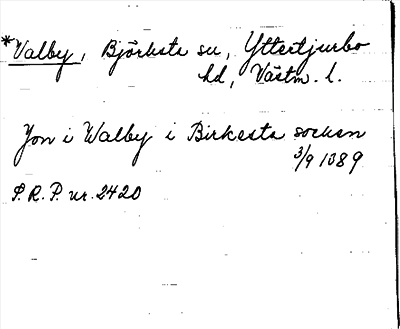 *Valby, Björksta sn, Yttertjurbo
hd, Västm. l.
Jon i Walby i Birkesta socken
3/9 1389
S. R. P. nr. 2420